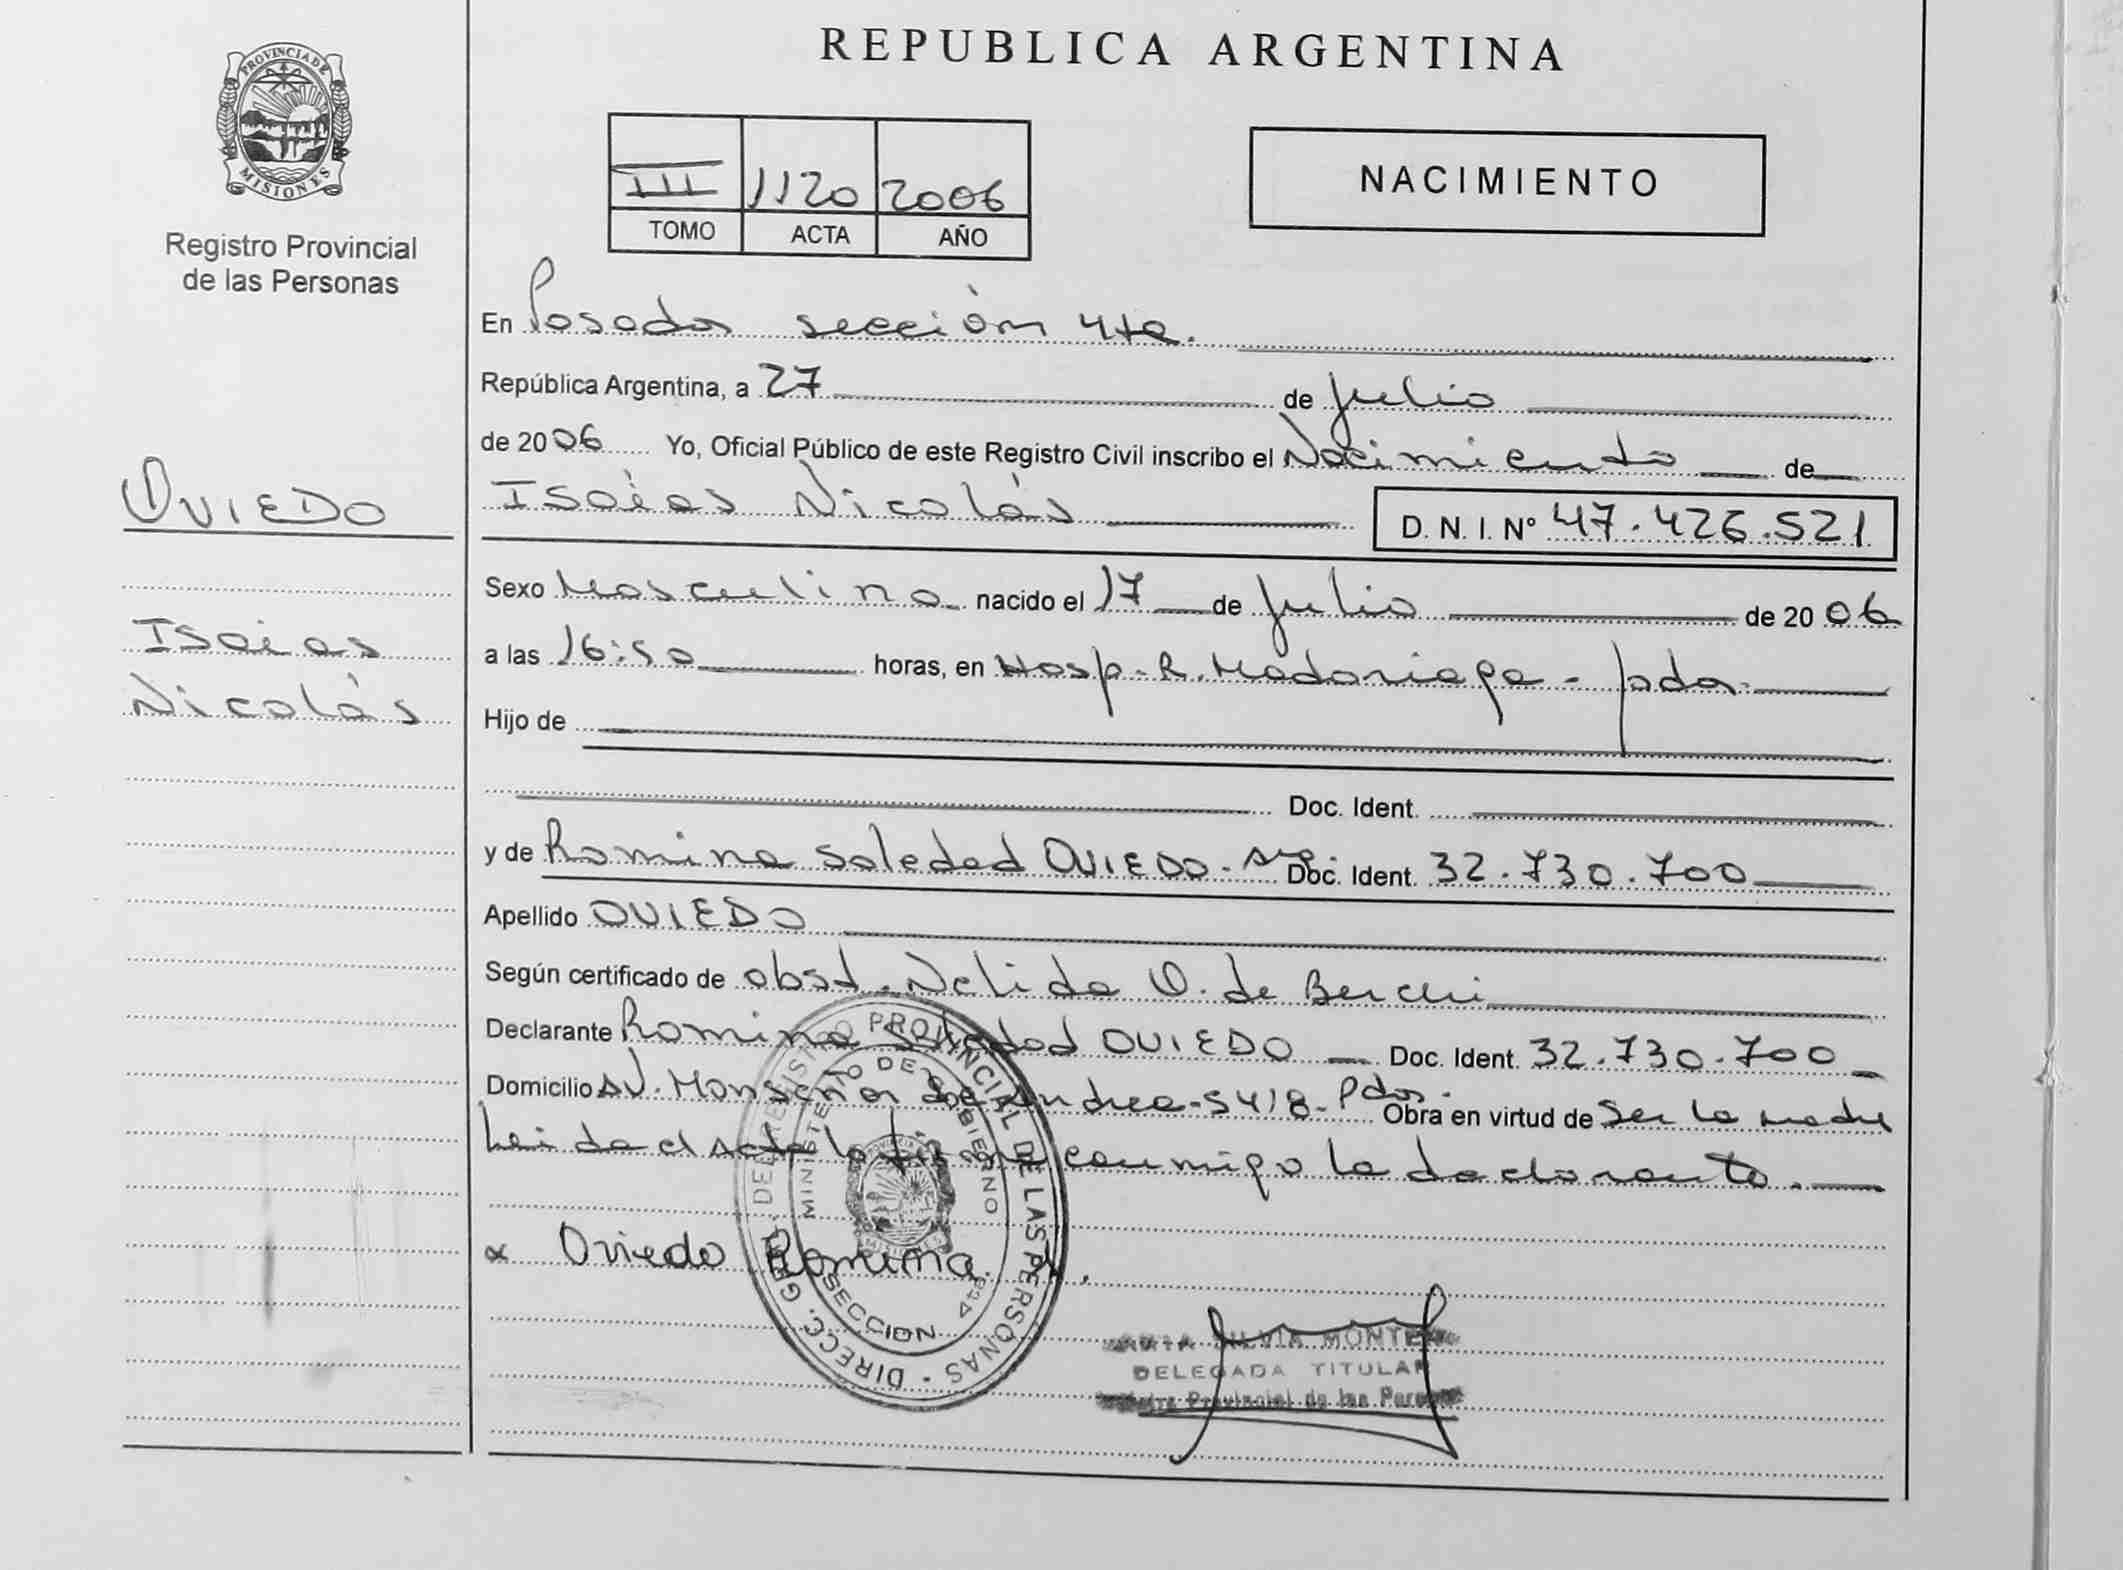 PROVINCIA DE
MISIONES
Registro Provincial
de las Personas
OVIEDO
Isaías
Nicolás
REPUBLICA ARGENTINA
III 1120 2006
TOMO ACTA AÑO
NACIMIENTO
En Posadas sección 4ta.
República Argentina, a 27 de Julio
de 2006 Yo, Oficial Público de este Registro Civil inscribo el Nacimiento de
Isaías Nicolás D. N. I. Nº 47.426.521
Sexo Masculino nacido el 17 de Julio de 2006
a las 16:50 horas, en Hosp. R. Madariaga - pdas.
Hijo de
Doc. Ident.
y de Romina Soledad OVIEDO - arg. Doc. Ident. 32.730.700
Apellido OVIEDO
Según certificado de obst. Nelida O. de
Declarante Romina Soledad OVIEDO Doc. Ident. 32.730.700
Domicilio Av. Monseñor de Andrea - 5418 - Pdas. Obra en virtud de ser la madre
Leida el acta la firma conmigo la declarante.
x Oviedo Romina
DIRECC. GRAL. DEL REGISTRO PROVINCIAL DE LAS PERSONAS
MINISTERIO DE GOBIERNO
PROVINCIA
MISIONES
SECCION 4ta
SILVIA
DELEGADA TITULAR
Provincial de las